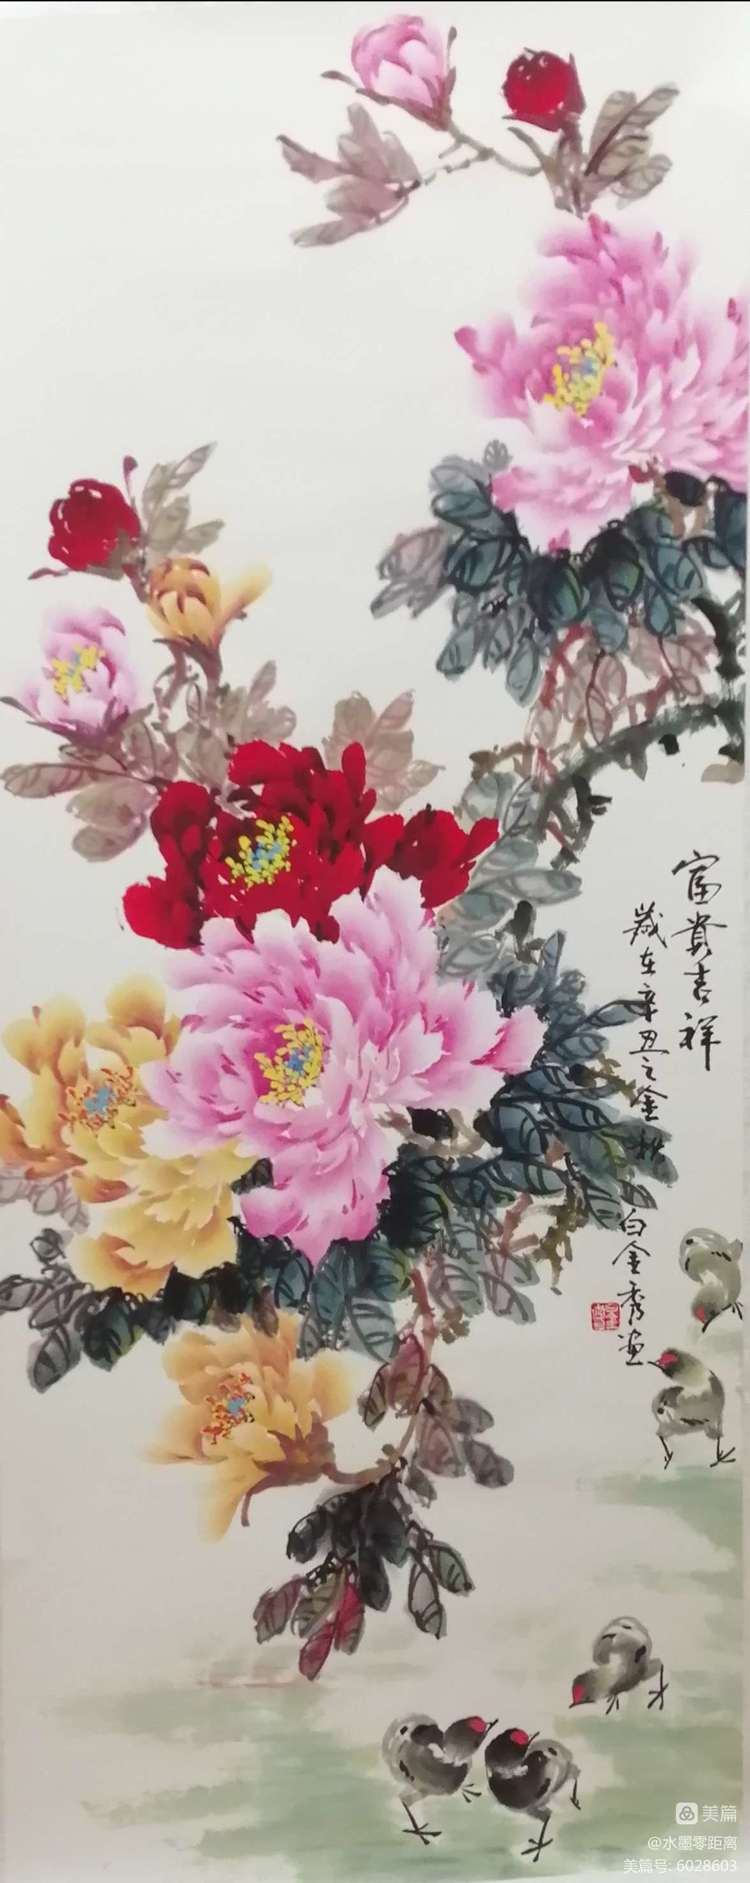 富貴吉祥
歲在辛丑之金秋
白金秀画
美篇
@水墨零距离
美篇号: 6028603